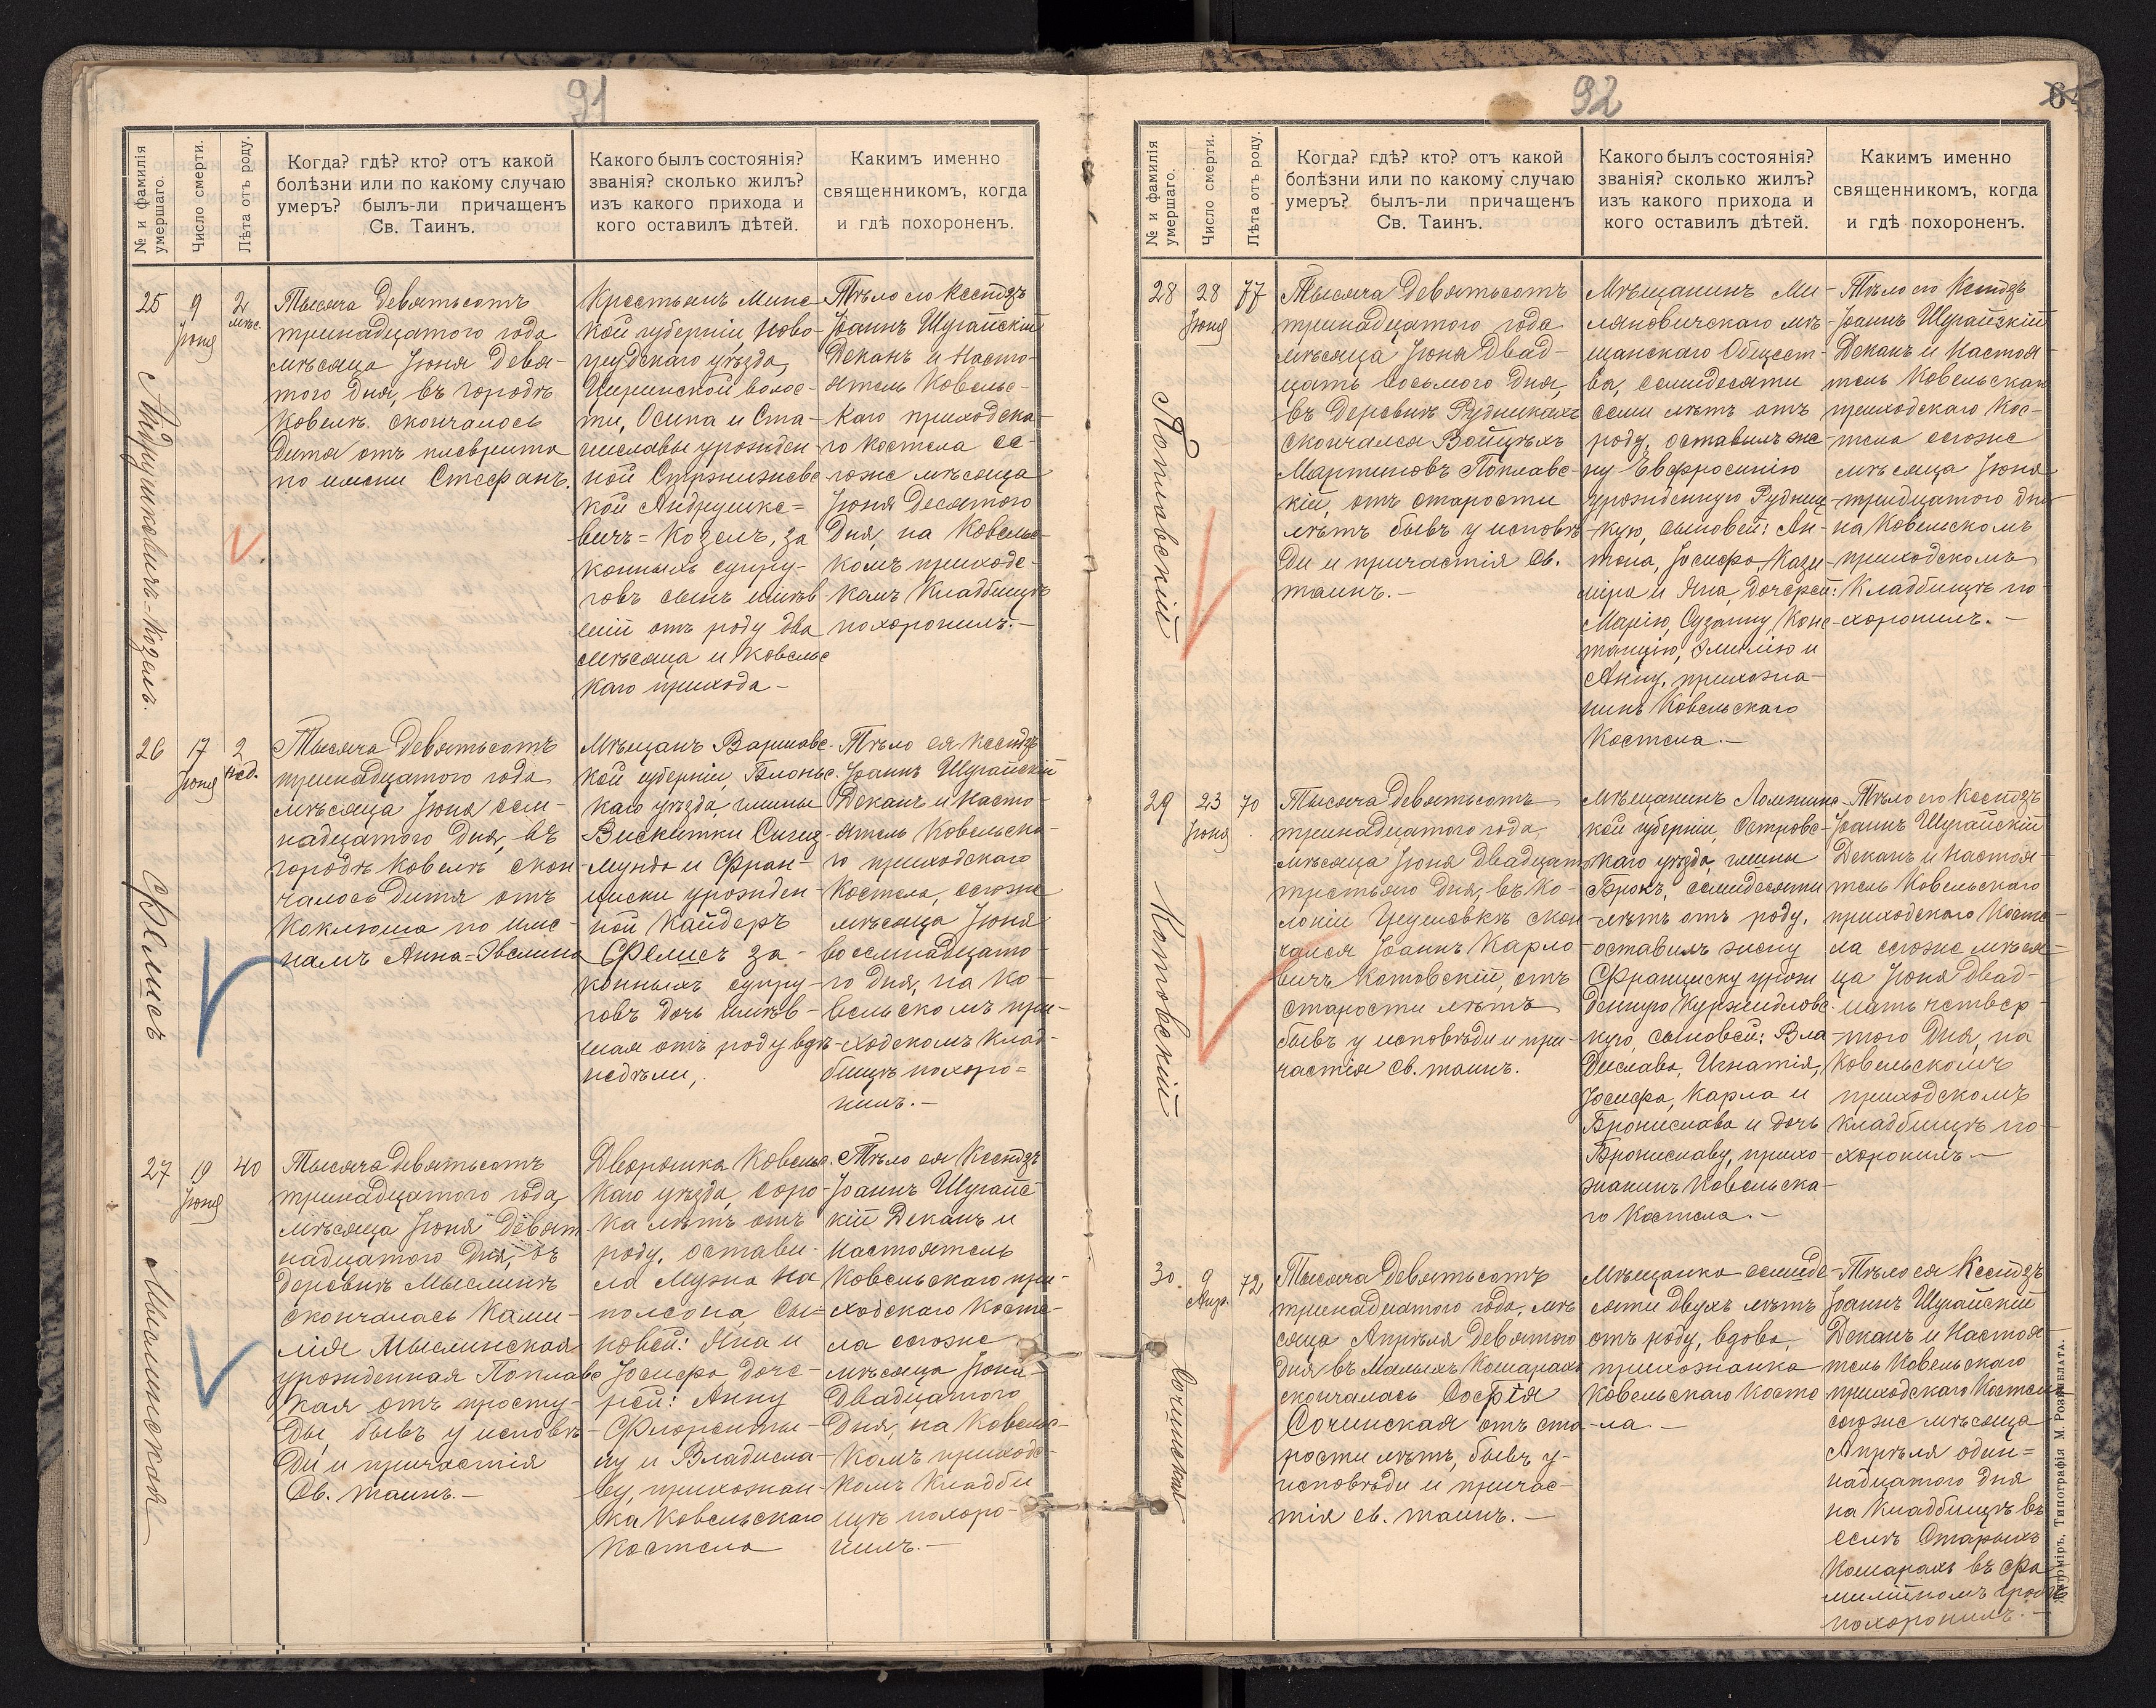 91
№ и фамилія умершаго.
Число смерти.
Лѣта отъ роду.
Когда? гдѣ? кто? отъ какой
болѣзни или по какому случаю
умеръ? былъ-ли причащенъ
Св. Таинъ.
Какого былъ состоянія?
званія? сколько жилъ?
изъ какого прихода и
кого оставилъ дѣтей.
Какимъ именно
священникомъ, когда
и гдѣ похороненъ.
25
9
Іюня
2
мѣс.
Андрушкевичъ-Козелъ.
Тысяча девятьсотъ
тринадцатого года
мѣсяца Іюня девя-
того дня, въ городѣ
Ковелѣ скончалось
дитя отъ плеврита
по имени Стефанъ.
Крестьянъ Минс-
кой губерніи, Ново-
грудскаго уѣзда,
Циринской волос-
ти, Осипа и Ста-
ниславы урожден-
ной
кой Андрушке=
вичъ=Козелъ, за
конныхъ супру-
говъ сынъ имѣв
шій отъ роду два
мѣсяца и Ковельс
каго прихода –
Тѣло его Ксендзъ
Іоаннъ Шугайскій
Деканъ и Насто-
ятель Ковельс-
каго приходска-
го костела се-
гоже мѣсяца
Іюня десятого
дня, на Ковельс-
комъ приходс-
комъ кладбищѣ
похоронилъ. –
26
17
Іюня
2
нед.
Фелисъ
Тысяча девятьсотъ
тринадцатого года
мѣсяца Іюня сем-
надцатого дня, въ
городѣ Ковелѣ скон
чалось дитя отъ
коклюша по име-
намъ Анна=Эвелина
Мѣщанъ Варшавс-
кой губерніи, Блоньс.
каго уѣзда, гмины
Вискитки Сигиз-
мунда и Фран-
циски урожден-
ной Кайдеръ
Фелисъ за-
конныхъ супру-
говъ дочь имѣв-
шая отъ роду двѣ
недѣли,.
Тѣло ея Ксендзъ
Іоаннъ Шугайскій
Деканъ и Насто-
ятель Ковельска-
го приходскаго
Костела, сегоже
мѣсяца Іюня
восемнадцато-
го дня, на Ко-
вельскомъ при-
ходскомъ клад-
бищѣ похоро=
нилъ. –
27
19
Іюня
40
Мыслинская
Тысяча девятьсотъ
тринадцатого года,
мѣсяца Іюня девят
надцатого дня, въ
деревнѣ Мыслинѣ
скончалась Ками-
лія Мыслинская
урожденная Поплавс
кая отъ просту-
ды, бывъ у исповѣ-
ди и причастія
Св. таинъ. –
Дворянка Ковельс.
каго уѣзда, соро-
ка лѣтъ отъ
роду, остави-
ла мужа На
полеона, сы=
новей: Яна и
Іосифа, доче-
рей: Анну
Флоренти-
ну и Владисла-
ву, прихожан-
ка Ковельскаго
Костела
Тѣло ея Ксендзъ
Іоаннъ Шугайс
кій Деканъ и
Настоятель
Ковельскаго при-
ходскаго Косте-
ла сегоже
мѣсяца Іюня
двадцатого
дня, на Ковельс-
комъ приходс-
комъ кладби
щѣ похоро-
нилъ. –
92
№ и фамилія умершаго.
Число смерти.
Лѣта отъ роду.
Когда? гдѣ? кто? отъ какой
болѣзни или по какому случаю
умеръ? былъ-ли причащенъ
Св. Таинъ.
Какого былъ состоянія?
званія? сколько жилъ?
изъ какого прихода и
кого оставилъ дѣтей.
Какимъ именно
священникомъ, когда
и гдѣ похороненъ.
28
28
Іюня
77
Поплавскій
Тысяча девятьсотъ
тринадцатого года
мѣсяца Іюня двад-
цать восьмого дня,
въ деревнѣ Рудникахъ
скончался Войцѣхъ
Мартиновъ Поплавс-
кій, отъ старости
лѣтъ бывъ у исповѣ
ди и причастія Св.
таинъ. –
Мѣщанинъ Ми-
ляновичскаго мѣ-
щанскаго Общест-
ва, семидесяти
семи лѣтъ отъ
роду, оставилъ же-
ну Евфросинію
урожденную Рудниц-
кую, сыновей: Ан-
тона, Іосифа, Кази-
міра и Яна, дочерей:
Марію, Сузанну, Конс-
танцію, Эмилію и
Анну, прихожа-
нинъ Ковельскаго
Костела. –
Тѣло его Ксендзъ
Іоаннъ Шугайскій
Деканъ и Настоя-
тель Ковельскаго
приходскаго Кос-
тела сегоже
мѣсяца Іюня
тридцатого дня
на Ковельскомъ
приходскомъ
Кладбищѣ по-
хоронилъ. –
29
23
Іюня
70
Котовскій
Тысяча девятьсотъ
тринадцатого года,
мѣсяца Іюня двадцать
третьяго дня, въ Ко-
лоніи скон
чался Іоаннъ Карло-
вичъ Котовскій, отъ
старости лѣтъ
бывъ у исповѣди и при-
частія Св. таинъ.
Мѣщанинъ Ломжинс-
кой губерніи, Островс-
каго уѣзда, гмины
Брокъ, семидесяти
лѣтъ отъ роду,
оставилъ жену
Франциску урож
денную
кую, сыновей: Вла-
дислава, Игнатія,
Іосифа, Карла и
Бронислава и дочь
Брониславу, прихо-
жанинъ Ковельска-
го Костела. –
Тѣло его Ксендзъ
Іоаннъ Шугайскій
Деканъ и Настоя-
тель Ковельскаго
приходскаго Косте-
ла сегоже мѣся-
ца Іюня двад-
цать четвер-
того дня, на
Ковельскомъ
приходскомъ
кладбищѣ по-
хоронилъ –
30.
9
Апр.
72
Сочинская
Тысяча девятьсотъ
тринадцатого года, мѣ
сяца Апрѣля девятого
дня въ Малыхъ Кошарахъ
скончалась Софія
Сочинская отъ ста-
рости лѣтъ, бывъ у-
исповѣди и причас-
тія св. таинъ. –
Мѣщанка семиде-
сяти двухъ лѣтъ
отъ роду, вдова,
прихожанка
Ковельскаго Косте
ла. –
Тѣло ея Ксендзъ
Іоаннъ Шугайскій
Деканъ и Настоя
тель Ковельскаго
приходскаго Костела
сегоже мѣсяца
Апрѣля один=
надцатого дня
на Кладбищѣ въ
селѣ Старыхъ
Кошарахъ въ фа
милійномъ гробѣ
похоронилъ. –
Житоміръ. Типографія М. Розенблата.